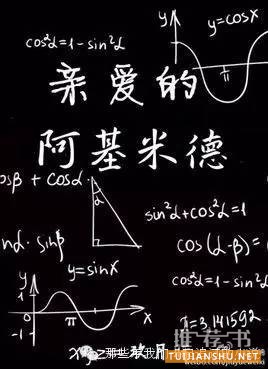 cos²α=1-sin²α
y
y=cosx
π
亲爱的
阿基米德
osβ + cosα.
α
sin²α+cos²α=1
nα·sinβ
cos(α-β)=
y=sinx
cos²α=1-sin²
y
1
0
-1
π
x
π=3.141592
推荐书
TUIJIANSHU.NET